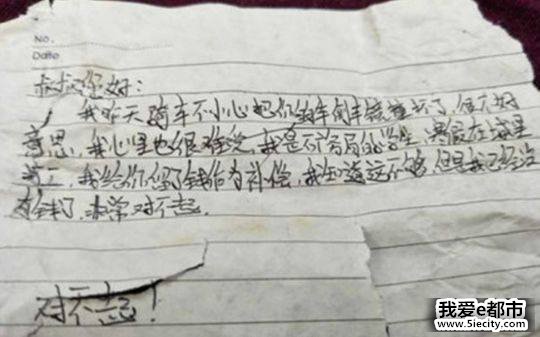 No.
Date
叔叔您好：
我昨天骑车不小心把你的车倒车镜撞坏了，很不好
意思，我心里也很难受，我是不富裕的学生，寒假在这里
打工，我给你留了钱作为补偿，我知道还不够，但是我已经没
有钱了，非常对不起。
对不起！
我爱e都市
www.5iecity.com